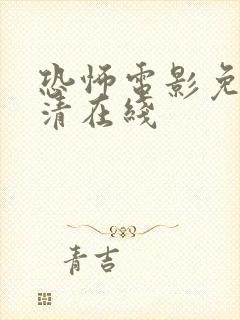 恐怖電影免
清在綫
青吉